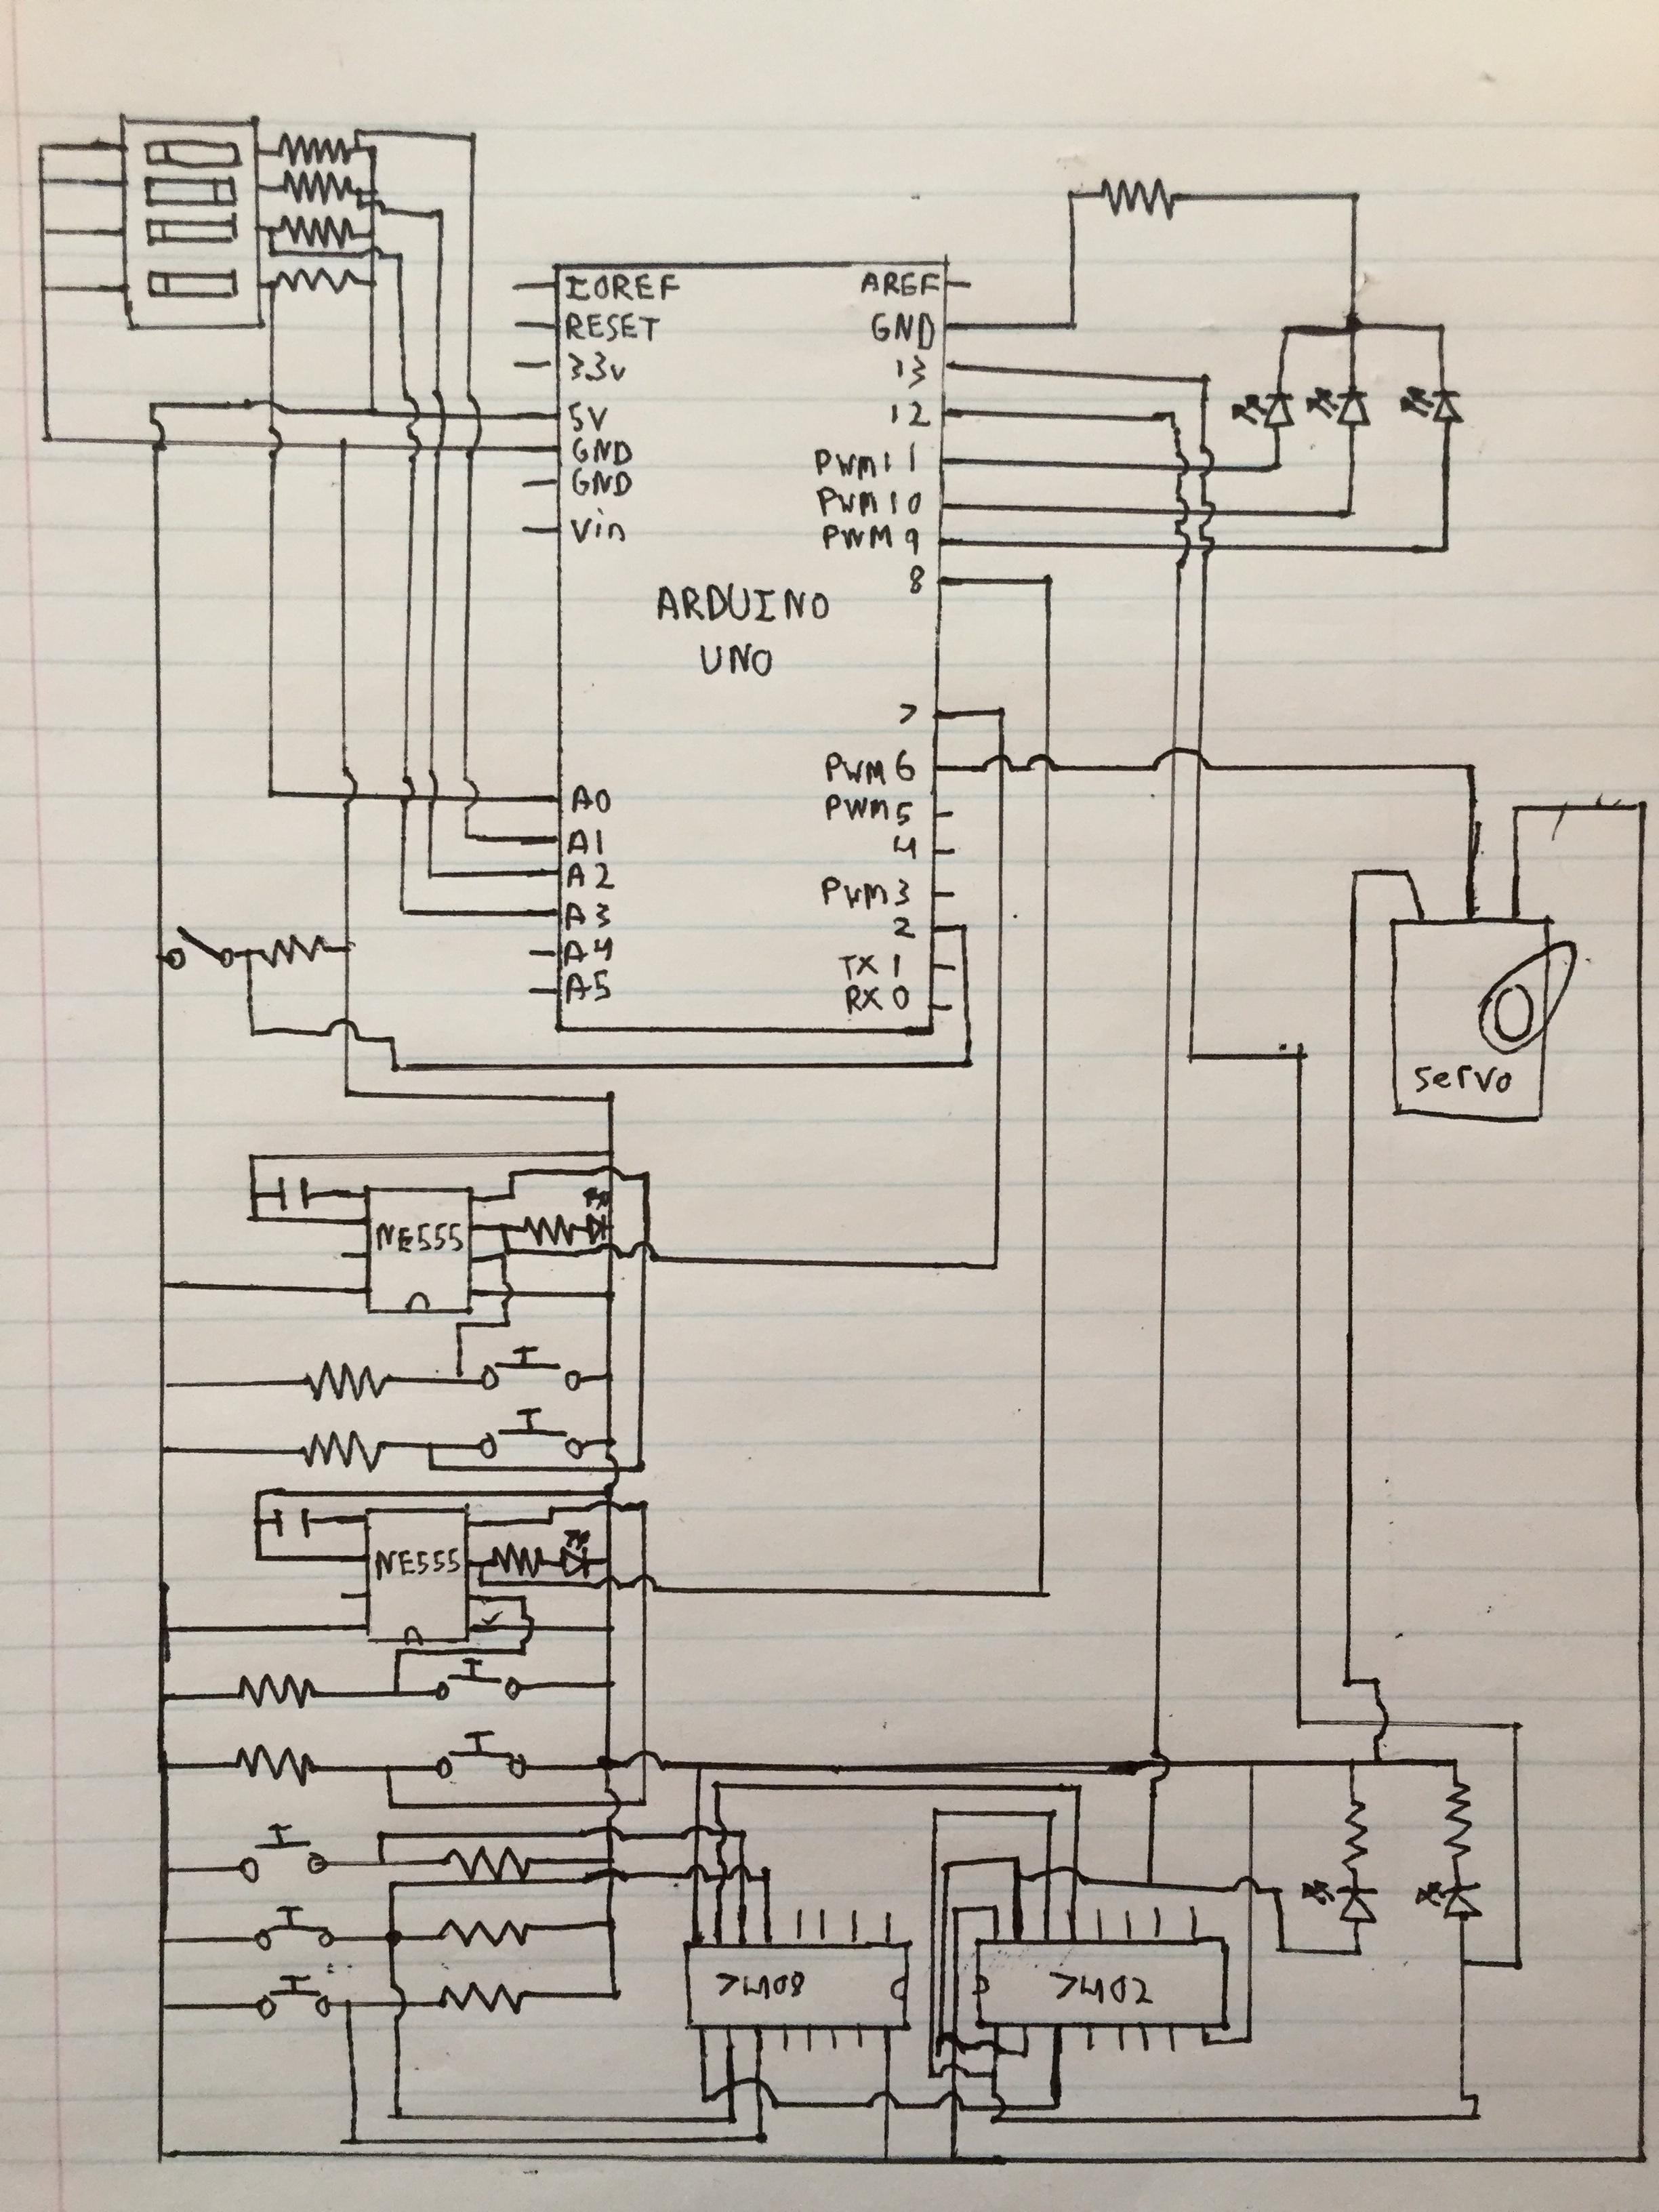 IOREF
RESET
3.3v
5V
GND
GND
Vin
A0
A1
A2
A3
A4
A5
ARDUINO
UNO
AREF
GND
13
12
PWM 11
PWM 10
PWM 9
8
7
PWM 6
PWM 5
4
PWM 3
2
TX 1
RX 0
servo
NE555
NE555
7408
7402